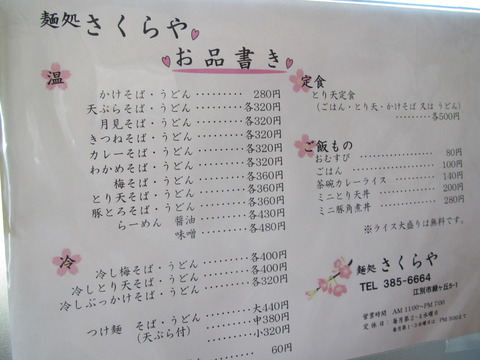 麺処さくらや
お品書き
温
かけそば・うどん ········· 280円
天ぷらそば・うどん ········· 各320円
月見そば・うどん ········· 各320円
きつねそば・うどん ········· 各320円
カレーそば・うどん ········· 各320円
わかめそば・うどん ········· 各320円
梅そば・うどん ········· 各360円
とり天そば・うどん ········· 各360円
豚とろそば・うどん ········· 各360円
らーめん 醤油 ········· 各430円
味噌 ········· 各480円
冷
冷し梅そば・うどん ········· 各400円
冷しとり天そば・うどん ········· 各400円
冷しぶっかけそば・うどん ········· 各320円
つけ麺 そば・うどん ········· 大440円
(天ぷら付) ········· 中380円
小320円
60円
定食
とり天定食
(ごはん・とり天・かけそば 又は うどん)
········· 各500円
ご飯もの
おむすび ········· 80円
ごはん ········· 100円
茶碗カレーライス ········· 140円
ミニとり天丼 ········· 200円
ミニ豚角煮丼 ········· 280円
※ライス大盛りは無料です。
麺処 さくらや
TEL 385-6664
江別市緑ヶ丘5-1
営業時間 AM11:00〜PM7:00
定休日:毎月第2・4水曜日